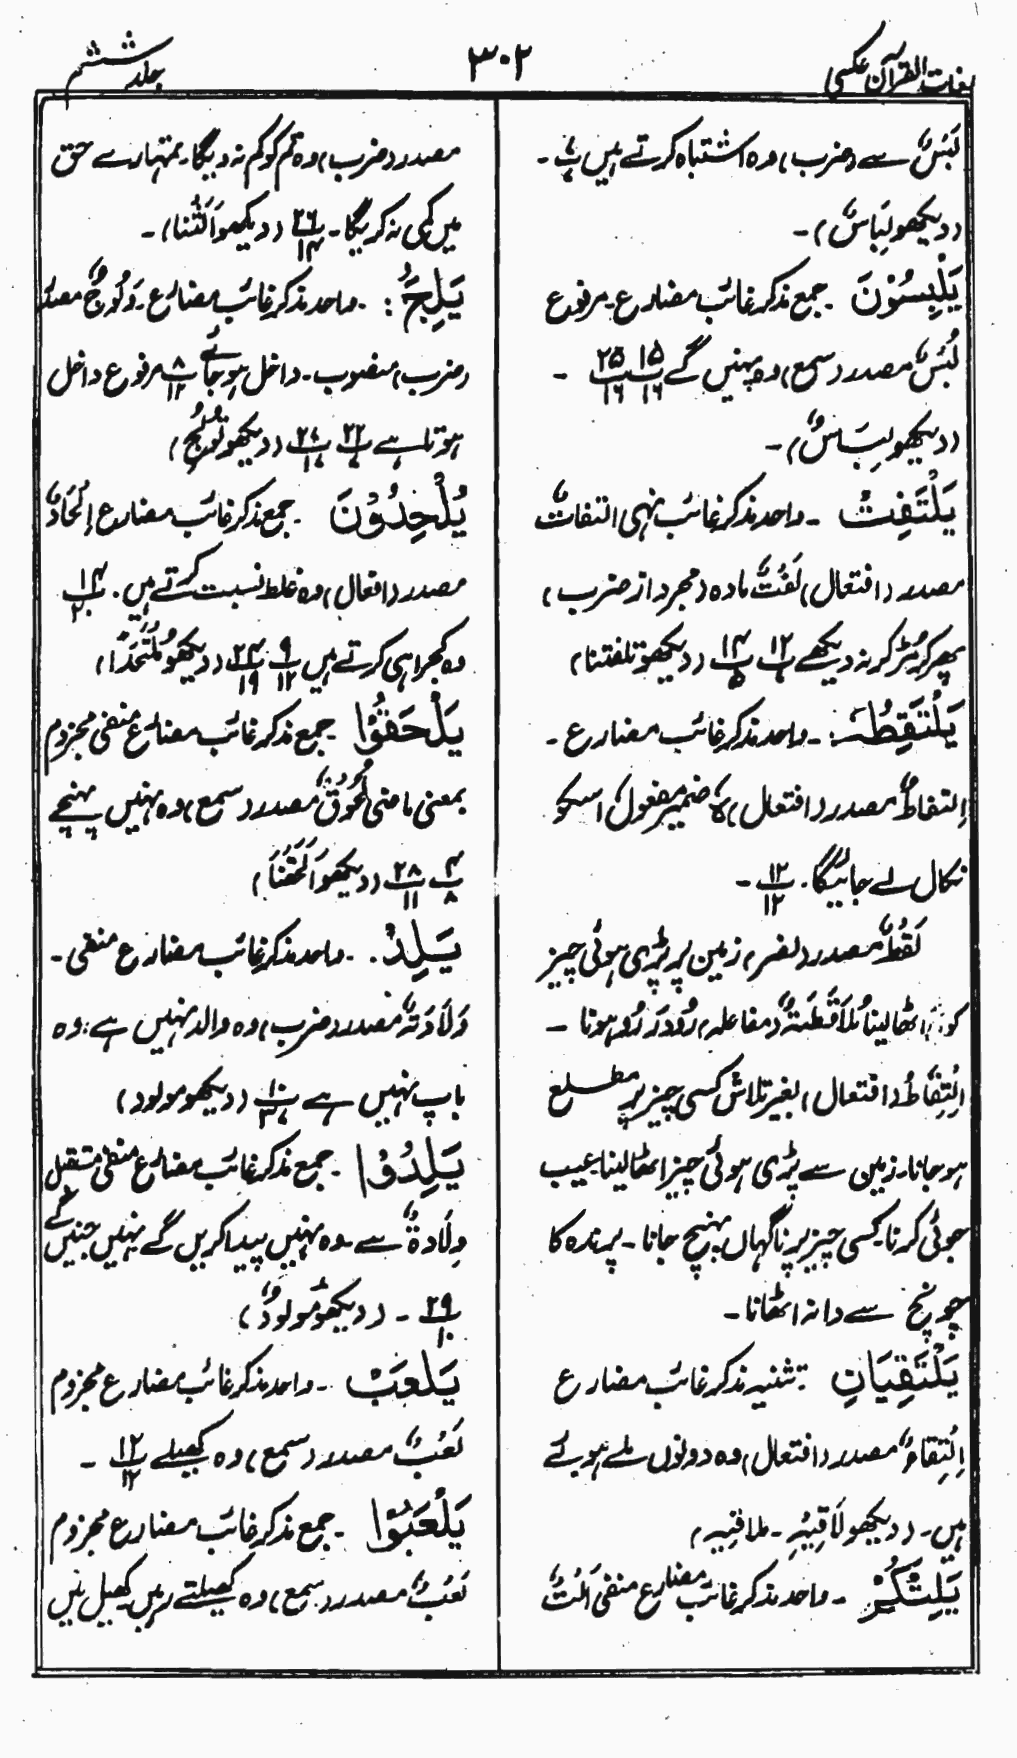 لغات القرآن عکسی
۳۰۲
جلد ششم
لَبْسٌ سے (ضرب) وہ اشتباہ کرتے ہیں پ ۔
(دیکھو لِبَاسٌ) ۔
یَلْبِسُوْنَ ۔ جمع مذکر غائب مضارع ۔ مرفوع
لُبْسٌ مصدر (سمع) وہ پہنیں گے ۱۵/۱۶ ۲۵/۱۶ ۔
(دیکھو لِبَاسٌ) ۔
یَلْتَفِتْ ۔ واحد مذکر غائب نہی التفاتٌ
مصدر (افتعال) لَفْتٌ مادہ (مجرد از ضرب)
پھر کر مڑ کر نہ دیکھے ۱۲/۷ ۱۴/۵ (دیکھو تلفتنا)
یَلْتَقِطْہُ : ۔ واحد مذکر غائب مضارع ۔
اِلتقاطٌ مصدر (افتعال) ہٗ ضمیر مفعول اسکو
نکال لے جائیگا ۔ ۱۲/۱۲ ۔
لَقْطٌ مصدر (نصر) زمین پر پڑی ہوئی چیز
کو اٹھا لینا مُلَاقَطَۃٌ (مفاعلہ) رُو دَر رُو ہونا ۔
اِلْتِقَاطٌ (افتعال) بغیر تلاش کسی چیز پر مطلع
ہو جانا ۔ زمین سے پڑی ہوئی چیز اٹھا لینا ۔ عیب
جوئی کرنا ۔ کسی چیز پر ناگہاں پہنچ جانا ۔ پرندہ کا
چونچ سے دانہ اٹھانا ۔
یَلْتَقِیَانِ ۔ تثنیہ مذکر غائب مضارع
اِلْتِقَاءٌ مصدر (افتعال) وہ دونوں ملے ہوئے
ہیں ۔ (دیکھو لَاقِیْہِ ۔ ملاقیہ)
یَلِتْکُمْ ۔ واحد مذکر غائب مضارع منفی اَلْتٌ
مصدر (ضرب) وہ تم کو کم نہ دیگا ۔ تمہارے حق
میں کمی نہ کریگا ۔ ۲۶/۱۴ (دیکھو اَلَتْنَا) ۔
یَلِجَ : ۔ واحد مذکر غائب مضارع ۔ وُلُوْجٌ مصدر
(ضرب) منصوب ۔ داخل ہو جائے ۸/۱۲ مرفوع داخل
ہوتا ہے ۲۲/۷ ۲۷/۱۷ (دیکھو تُوْلِجُ)
یُلْحِدُوْنَ ۔ جمع مذکر غائب مضارع اِلْحَادٌ
مصدر (افعال) وہ غلط نسبت کرتے ہیں ۔ ۱۴/۲۰
وہ کجراہی کرتے ہیں ۹/۱۲ ۲۴/۱۹ (دیکھو مُلْتَحَدًا)
یَلْحَقُوْا ۔ جمع مذکر غائب مضارع منفی مجزوم
بمعنی ماضی لُحُوْقٌ مصدر (سمع) وہ نہیں پہنچے
۴/۸ ۲۸/۱۱ (دیکھو اَلْحَقْنَا)
یَلِدْ ۔ واحد مذکر غائب مضارع منفی ۔
وَلَادَتْہٌ مصدر (ضرب) وہ والد نہیں ہے : وہ
باپ نہیں ہے ۱۰/۳۷ (دیکھو مولود)
یَلِدُوْا ۔ جمع مذکر غائب مضارع منفی مستقبل
وِلَادۃٌ سے ۔ وہ نہیں پیدا کریں گے نہیں جنیں گے
۲۹/۱۰ ۔ (دیکھو مَولودٌ)
یَلْعَبْ ۔ واحد مذکر غائب مضارع مجزوم
لَعْبٌ مصدر (سمع) وہ کھیلے ۱۲/۱۲ ۔
یَلْعَبُوْا ۔ جمع مذکر غائب مضارع مجزوم
لَعْبٌ مصدر (سمع) وہ کھیلتے رہیں کھیل لیں